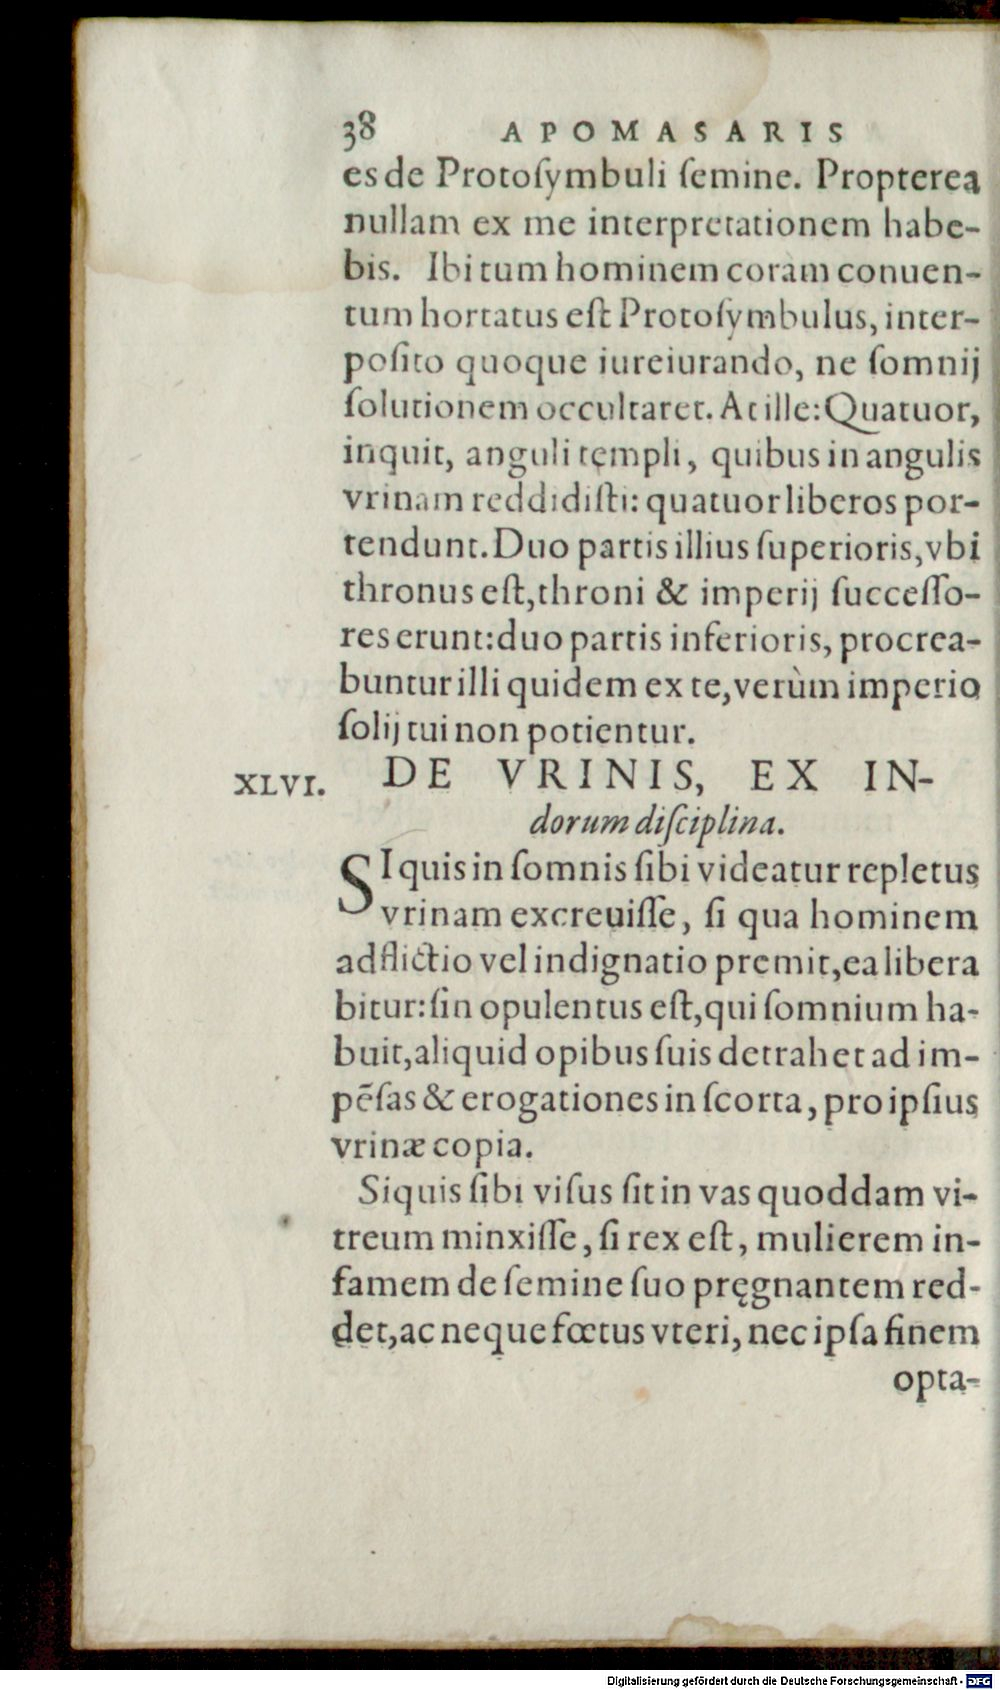 38 APOMASARIS
es de Protoſymbuli ſemine. Propterea
nullam ex me interpretationem habe-
bis. Ibi tum hominem coràm conuen-
tum hortatus eſt Protoſymbulus, inter-
poſito quoque iureiurando, ne ſomnij
ſolutionem occultaret. At ille: Quatuor,
inquit, anguli templi, quibus in angulis
vrinam reddidiſti: quatuor liberos por-
tendunt. Duo partis illius ſuperioris, vbi
thronus eſt, throni & imperij ſucceſſo-
res erunt: duo partis inferioris, procrea-
buntur illi quidem ex te, verùm imperio
ſolij tui non potientur.
XLVI. DE VRINIS, EX IN-
dorum diſciplina.
SI quis in ſomnis ſibi videatur repletus
vrinam excreuiſſe, ſi qua hominem
adflictio vel indignatio premit, ea libera
bitur: ſin opulentus eſt, qui ſomnium ha-
buit, aliquid opibus ſuis detrahet ad im-
pẽſas & erogationes in ſcorta, pro ipſius
vrinæ copia.
Siquis ſibi viſus ſit in vas quoddam vi-
treum minxiſſe, ſi rex eſt, mulierem in-
famem de ſemine ſuo pręgnantem red-
det, ac neque fœtus vteri, nec ipſa finem
opta-
Digitalisierung gefördert durch die Deutsche Forschungsgemeinschaft - DFG